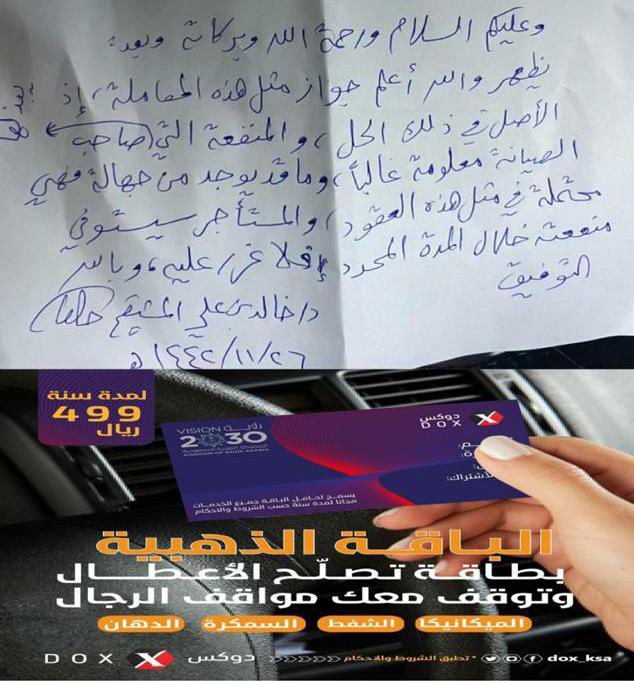 وعليكم السلام ورحمة الله وبركاته وبعد:
يظهر والله أعلم جواز مثل هذه المعاملة، إذ
الأصل في ذلك الحل، والمنفعة التي
الصيانة معلومة غالباً، وما قد يوجد من جهالة فهي
محتملة في مثل هذه العقود، والمستأجر سيستوفي
منفعته خلال المدة المحددة فلا غرر عليه، وبالله
التوفيق
د/خالد بن علي المشيقح
١٤٤٢/١١/٢٦هـ
لمدة سنة
499
ريال
رؤية VISION
2030
المملكة العربية السعودية
KINGDOM OF SAUDI ARABIA
دوكس
DOX
الاشتراك:
يسمح لحامل الباقة جميع الخدمات
مجانا لمدة سنة حسب الشروط والاحكام
الباقة الذهبية
بطاقة تصلّح الأعطال
وتوقف معك مواقف الرجال
الميكانيكا الشفط السمكرة الدهان
DOX دوكس >>>>>> * تطبق الشروط والاحكام dox_ksa